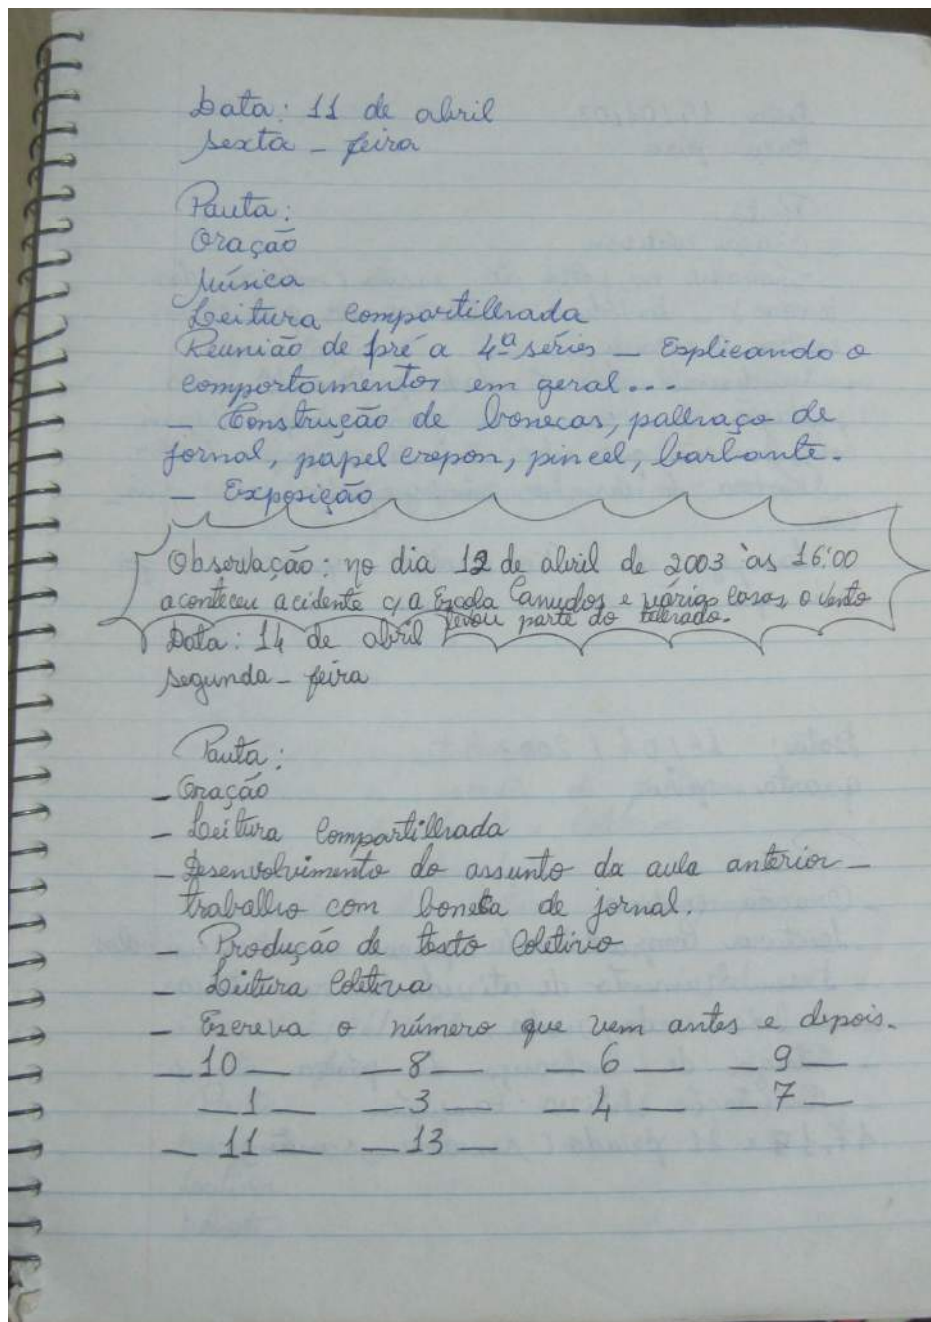 Data: 11 de abril
sexta - feira
Pauta:
Oração
Música
Leitura Compartilhada
Reunião de pré a 4ª séries - Explicando o
comportamentos em geral...
- Construção de bonecas, palhaço de
jornal, papel crepon, pincel, barbante.
- Exposição
Observação: no dia 12 de abril de 2003 às 16:00
aconteceu acidente c/ a Escola Canudos e várias casas, o vento
levou parte do telhado.
Data: 14 de abril
segunda - feira
Pauta:
- Oração
- Leitura Compartilhada
- Desenvolvimento do assunto da aula anterior -
trabalho com boneca de jornal.
- Produção de texto Coletivo
- Leitura Coletiva
- Escreva o número que vem antes e depois.
_ 10 _ _ 8 _ _ 6 _ _ 9 _
_ 1 _ _ 3 _ _ 4 _ _ 7 _
_ 11 _ _ 13 _